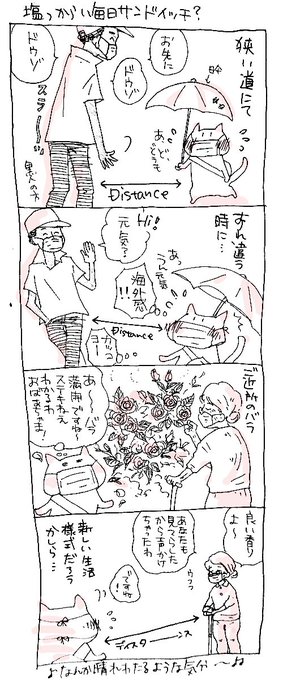 塩っからい毎日サンドイッチ?
狭い道にて
お先に
ドウゾ
ドウゾ
スラーーッ
黒人の方
日傘
あ、ど、どうも
Distance
すれ違う
時に…
Hi!
元気?
海外感
!!
あっ
うん元気
カッコ
ヨ
Distance
ご近所のバラ
あ〜〜バラ
満開ですね
ステキねえ
わかるわ
おばあちゃま!
良い香り
よ〜
あなたも
見てらした
から声かけ
ちゃったわ
ウフフ
いですね
新しい生活
様式だろう
かしら…
ディスターンス
♪なんか晴れわたるような気分〜♪